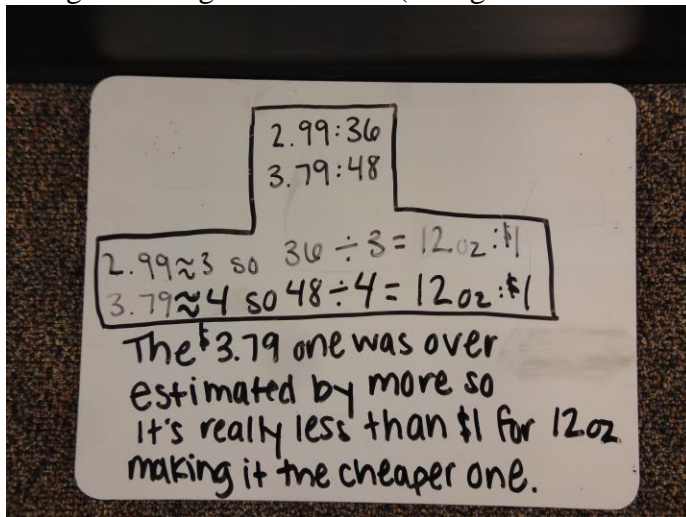 2.99:36
3.79:48
2.99≈3 so 36÷3=12oz:$1
3.79≈4 so 48÷4=12oz:$1
The $3.79 one was over
estimated by more so
It's really less than $1 for 12oz
making it the cheaper one.